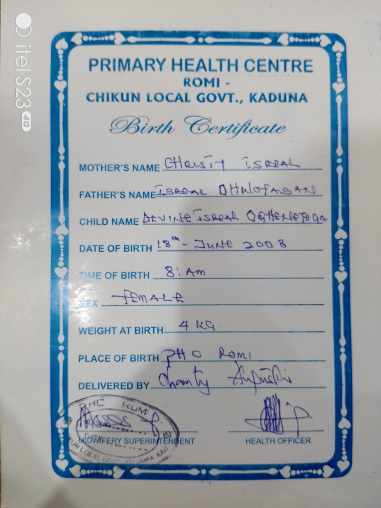 itel S23
PRIMARY HEALTH CENTRE
ROMI -
CHIKUN LOCAL GOVT., KADUNA
Birth Certificate
MOTHER'S NAME Christy Isreal
FATHER'S NAME Isreal
CHILD NAME Divine Isreal Oghenetega
DATE OF BIRTH 18th - June 2008
TIME OF BIRTH 8: Am
SEX Female
WEIGHT AT BIRTH 4 KG
PLACE OF BIRTH PHC Romi
DELIVERED BY Charity
PHC ROMI
MIDWIFERY SUPERINTENDENT HEALTH OFFICER